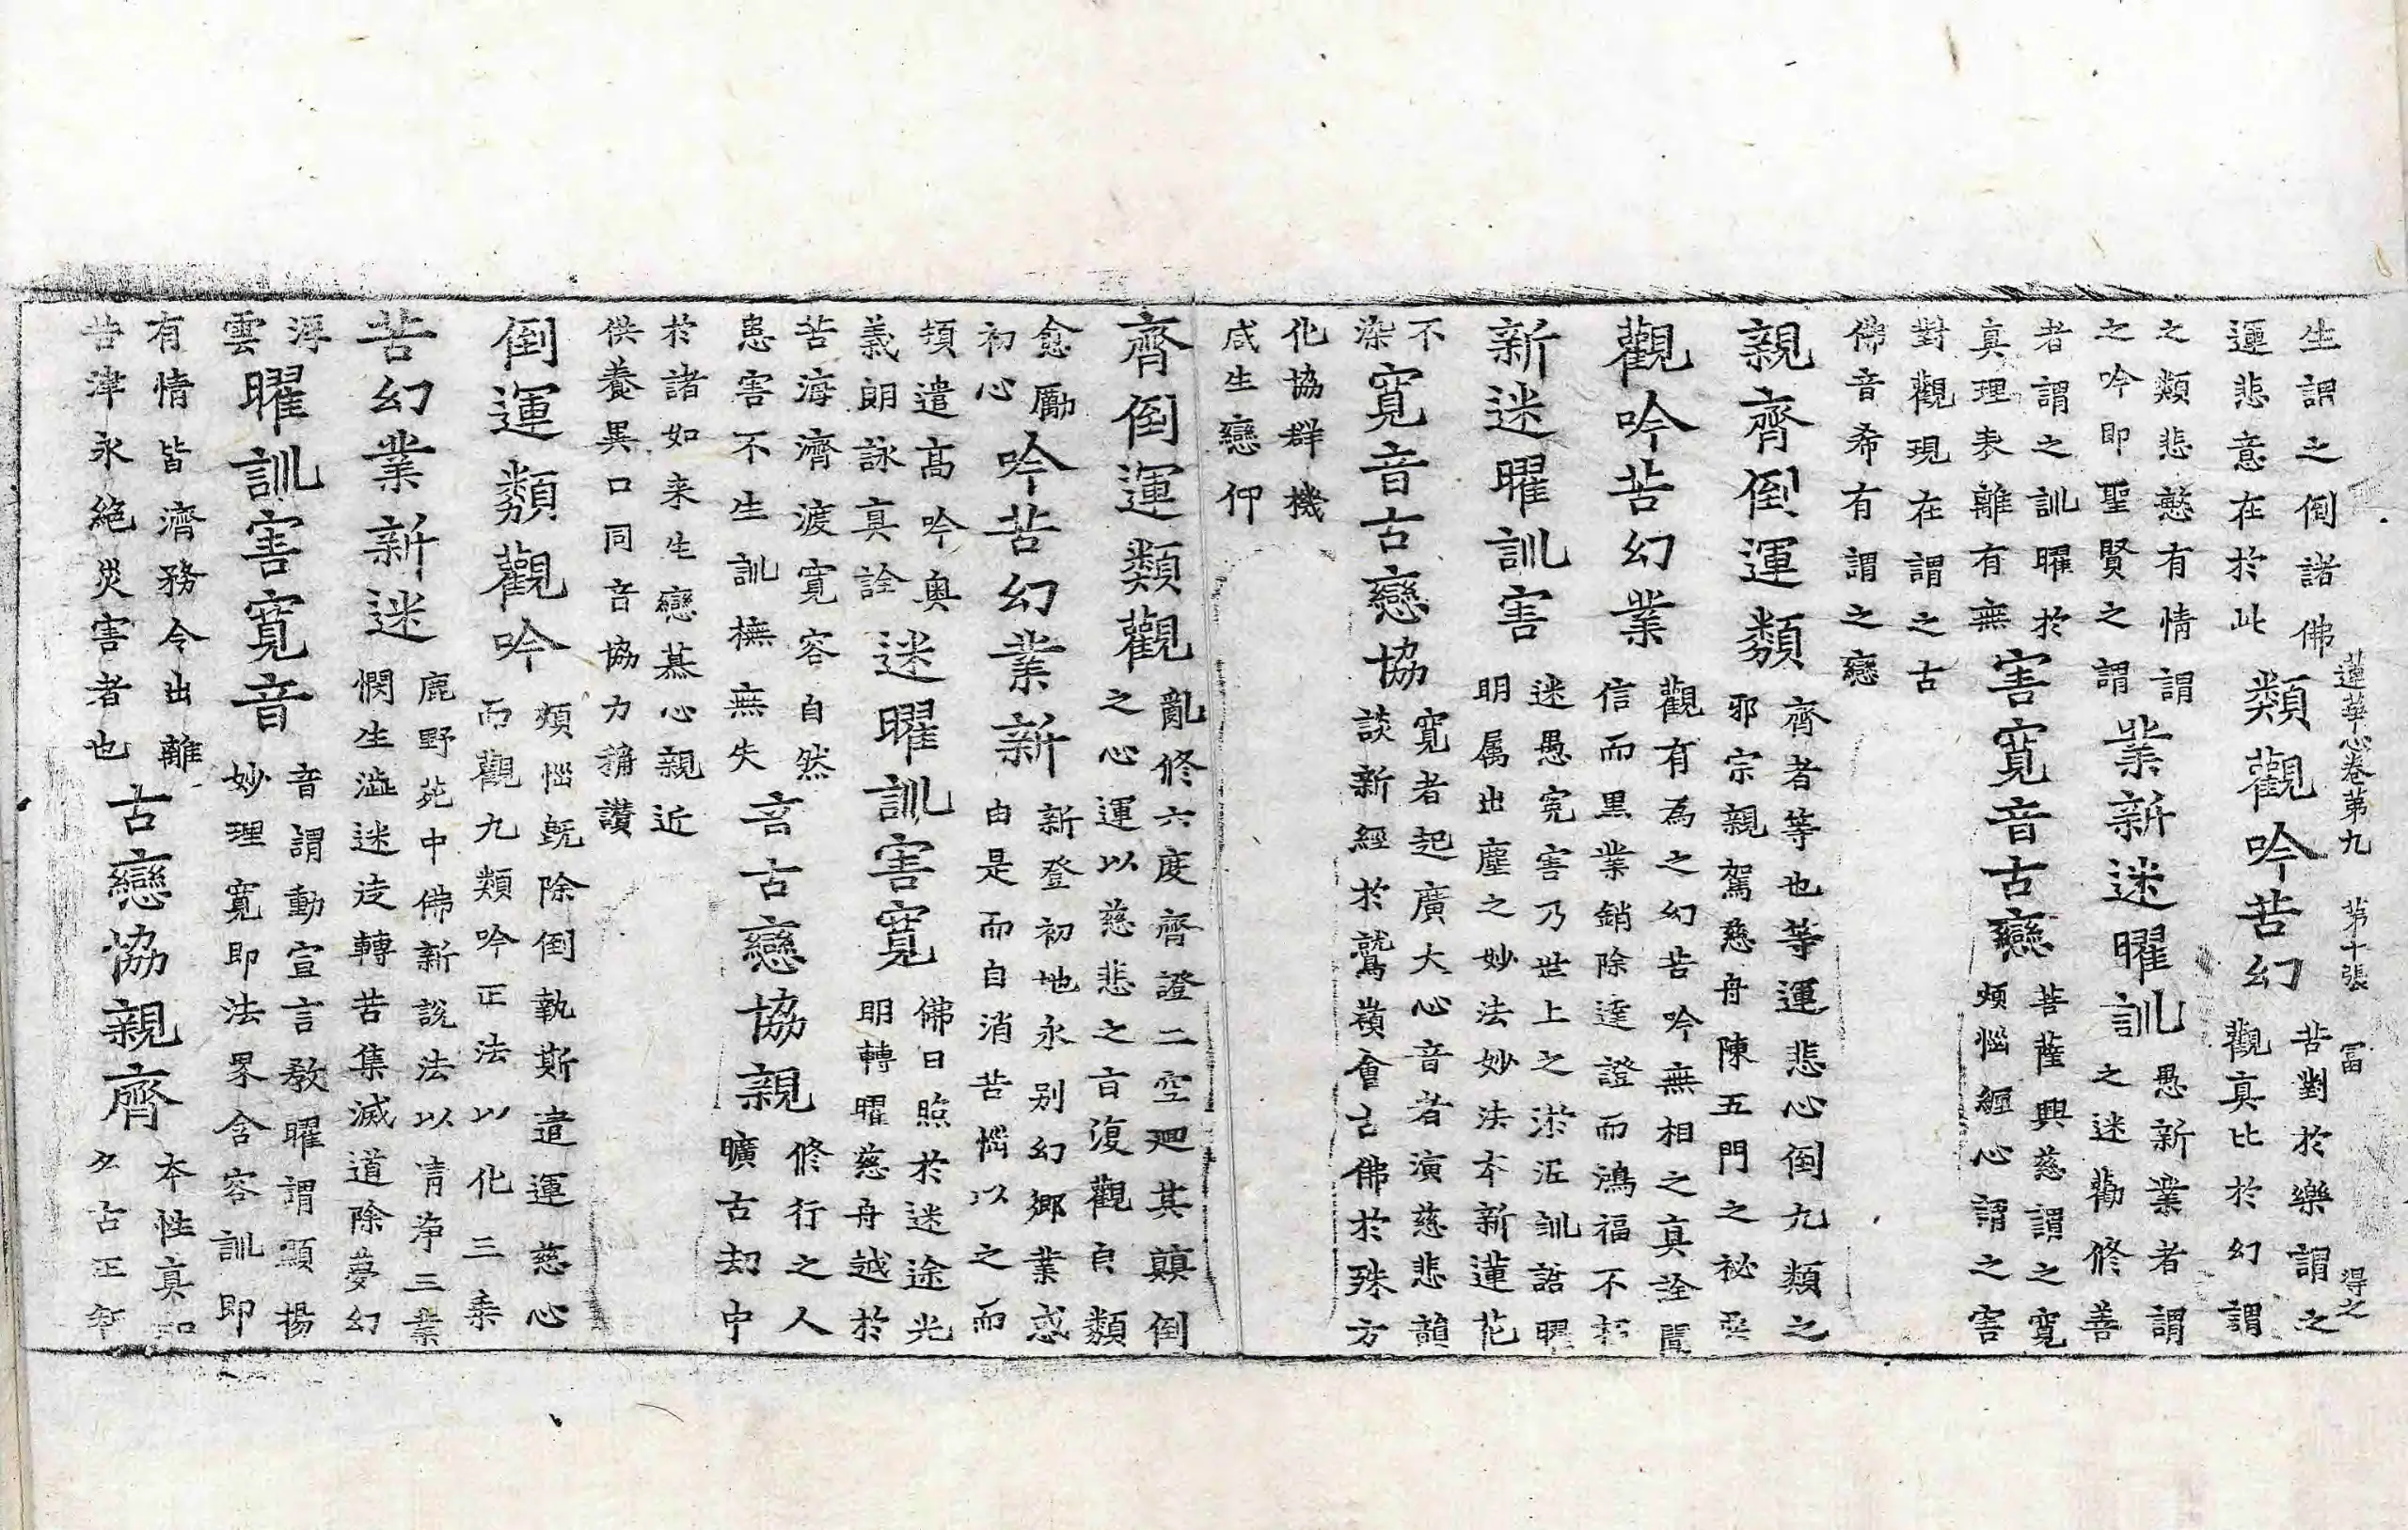 生謂之倒諸佛
運悲意在於此
類觀吟苦幻
苦對於樂謂之
觀真比於幻謂
之類悲愍有情謂
之吟即聖賢之謂
業新迷曜訓
愚新業者謂
之迷勸修善
者謂之訓曜於
真理表離有無
害寬音古戀
菩薩興慈謂之寬
煩惱纏心謂之害
對觀現在謂之古
佛音希有謂之戀
蓮華心卷第九 第十張 冨 得之
親齊倒運類
齊者等也等運悲心倒九類之
邪宗親駕慈舟陳五門之祕
觀吟苦幻業
觀有為之幻苦吟無相之真詮
信而黒業銷除達證而鴻福不
新迷曜訓害
迷愚寃害乃世上之淤泥訓語曜
明属出塵之妙法妙法本新蓮花
不
染
寬音古戀協
寛者起廣大心音者演慈悲韻
談新經於鷲嶺會古佛於殊方
化協群機
咸生戀仰
齊倒運類觀
亂修六度齊證二空迴其顛倒
之心運以慈悲之旨復觀自類
愈勵
初心
吟苦幻業新
新登初地永别幻鄉業惑
由是而自消苦惱以之而
頓遣髙吟奥
義朗詠真詮
迷曜訓害寬
佛日照於迷途光
明轉曜慈舟越於
苦海濟渡寛容自然
患害不生訓撫無失
音古戀協親
修行之人
曠古劫中
於諸如来生戀慕心親近
供養異口同音協力稱讚
倒運類觀吟
煩惱既除倒執斯遣運慈心
而觀九類吟正法以化三乘
苦幻業新迷
鹿野苑中佛新説法以清淨三業
憫生澁迷途轉苦集滅道除夢幻
浮
雲
曜訓害寛音
音謂動宣言教曜謂顯揚
妙理寛即法界含容訓即
有情皆濟務令出離
苦津永絶災害者也
古戀協親齊
本性真如
古正